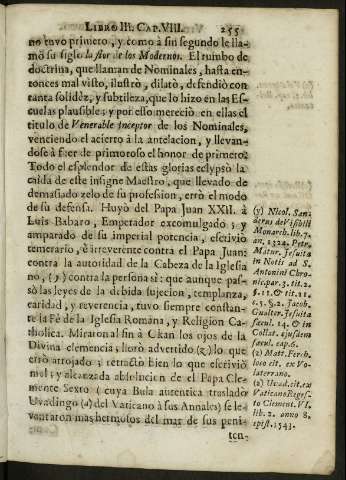 LIBRO III. CAP. VIII. 255
no tuvo primero, y como à sin segundo le lla-
mò su siglo la flor de los Modernos. El rumbo de
doctrina, que llaman de Nominales, hasta en-
tonces mal visto, ilustrò, dilatò, defendiò con
tanta solidèz, y subtileza, que lo hizo en las Es-
cuelas plausible; y por esso mereciò en ellas el
titulo de Venerable inceptor de los Nominales,
venciendo el acierto à la antelacion, y llevan-
dose à ser de primoroso el honor de primero.
Todo el esplendor de estas glorias eclypsò la
caida de este insigne Maestro, que llevado de
demasiado zelo de su profession, errò el modo
de su defensa. Huyò del Papa Juan XXII. à
Luis Babaro, Emperador excomulgado; y
amparado de su imperial potencia, escriviò
temerario, è irreverente contra el Papa Juan:
contra la autoridad de la Cabeza de la Iglesia
no, (y) contra la persona sì: que aunque pas-
sò las leyes de la debida sujecion, templanza,
caridad, y reverencia, tuvo siempre constan-
te la Fè de la Iglesia Romana, y Religion Ca-
tholica. Miraron al fin à Okan los ojos de la
Divina clemencia, llorò advertido (z) lo que
errò arrojado; retractò bien lo que escriviò
mal; y alcanzada absolucion de el Papa Cle-
mente Sexto (cuya Bula autentica traslado
Uvadingo (a) del Vaticano à sus Annales) se le-
vantaron mas hermosos del mar de sus peni-
ten-
(y) Nicol. San-
derus de Visibili
Monarch. lib. 7.
an. 1322. Petr.
Matur. Jesuita
in Notis ad S.
Antonini Chro-
nic. par. 3. tit. 2.
Gualter. Jesuita
sæcul. 14. & in
Collat. ejusdem
sæcul. cap. 6.
(z) Matt. Fer. h.
loco cit. ex Vo-
laterrano.
(a) Uvad. cit. ex
Vaticano Regest-
to Clement. VI.
lib. 2. anno 8.
epist. 1543.